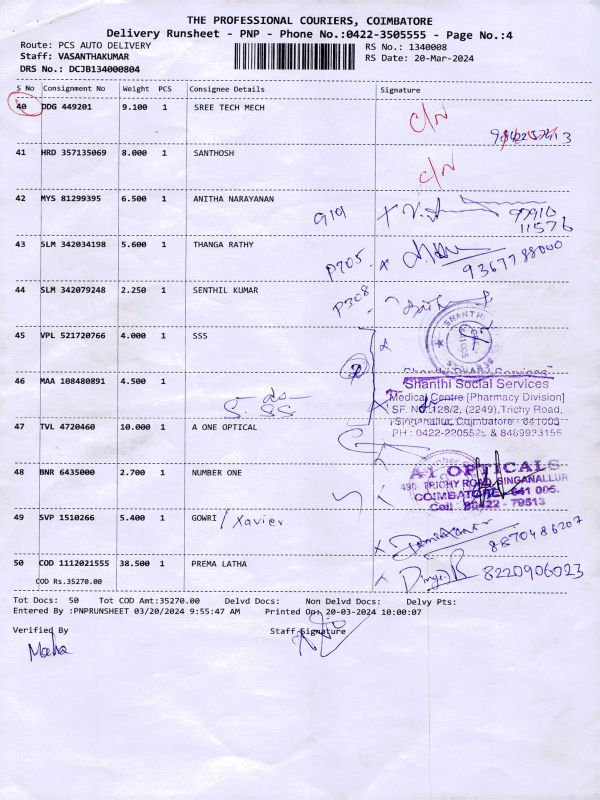 THE PROFESSIONAL COURIERS, COIMBATORE
Delivery Runsheet - PNP - Phone No.:0422-3505555 - Page No.:4
Route: PCS AUTO DELIVERY RS No.: 1340008
Staff: VASANTHAKUMAR RS Date: 20-Mar-2024
DRS No.: DCJB134000804
S No Consignment No Weight PCS Consignee Details Signature
40 DDG 449201 9.100 1 SREE TECH MECH C/N
41 HRD 357135069 8.000 1 SANTHOSH C/N
42 MYS 81299395 6.500 1 ANITHA NARAYANAN G19 97916
11576
43 SLM 342034198 5.600 1 THANGA RATHY P705 9367788000
44 SLM 342079248 2.250 1 SENTHIL KUMAR P308
45 VPL 521720766 4.000 1 SSS
SHANTHI
46 MAA 108480891 4.500 1 S. SS
Shanthi Social Services
Medical Centre [Pharmacy Division]
SF. No.128/2, (2249),Trichy Road,
Singanallur, Coimbatore - 641005
PH : 0422-2205525 & 8489933155
47 TVL 4720460 10.000 1 A ONE OPTICAL
48 BNR 6435000 2.700 1 NUMBER ONE
A1 OPTICALS
490 TRICHY ROAD, SINGANALLUR
COIMBATORE - 641 005.
Cell : 95422 - 79513
49 SVP 1510266 5.400 1 GOWRI / Xavier 8870486207
50 COD 1112021555 38.500 1 PREMA LATHA 8220906023
COD Rs.35270.00
Tot Docs: 50 Tot COD Amt:35270.00 Delvd Docs: Non Delvd Docs: Delvy Pts:
Entered By :PNPRUNSHEET 03/20/2024 9:55:47 AM Printed On: 20-03-2024 10:00:07
Verified By Staff Signature
Maha